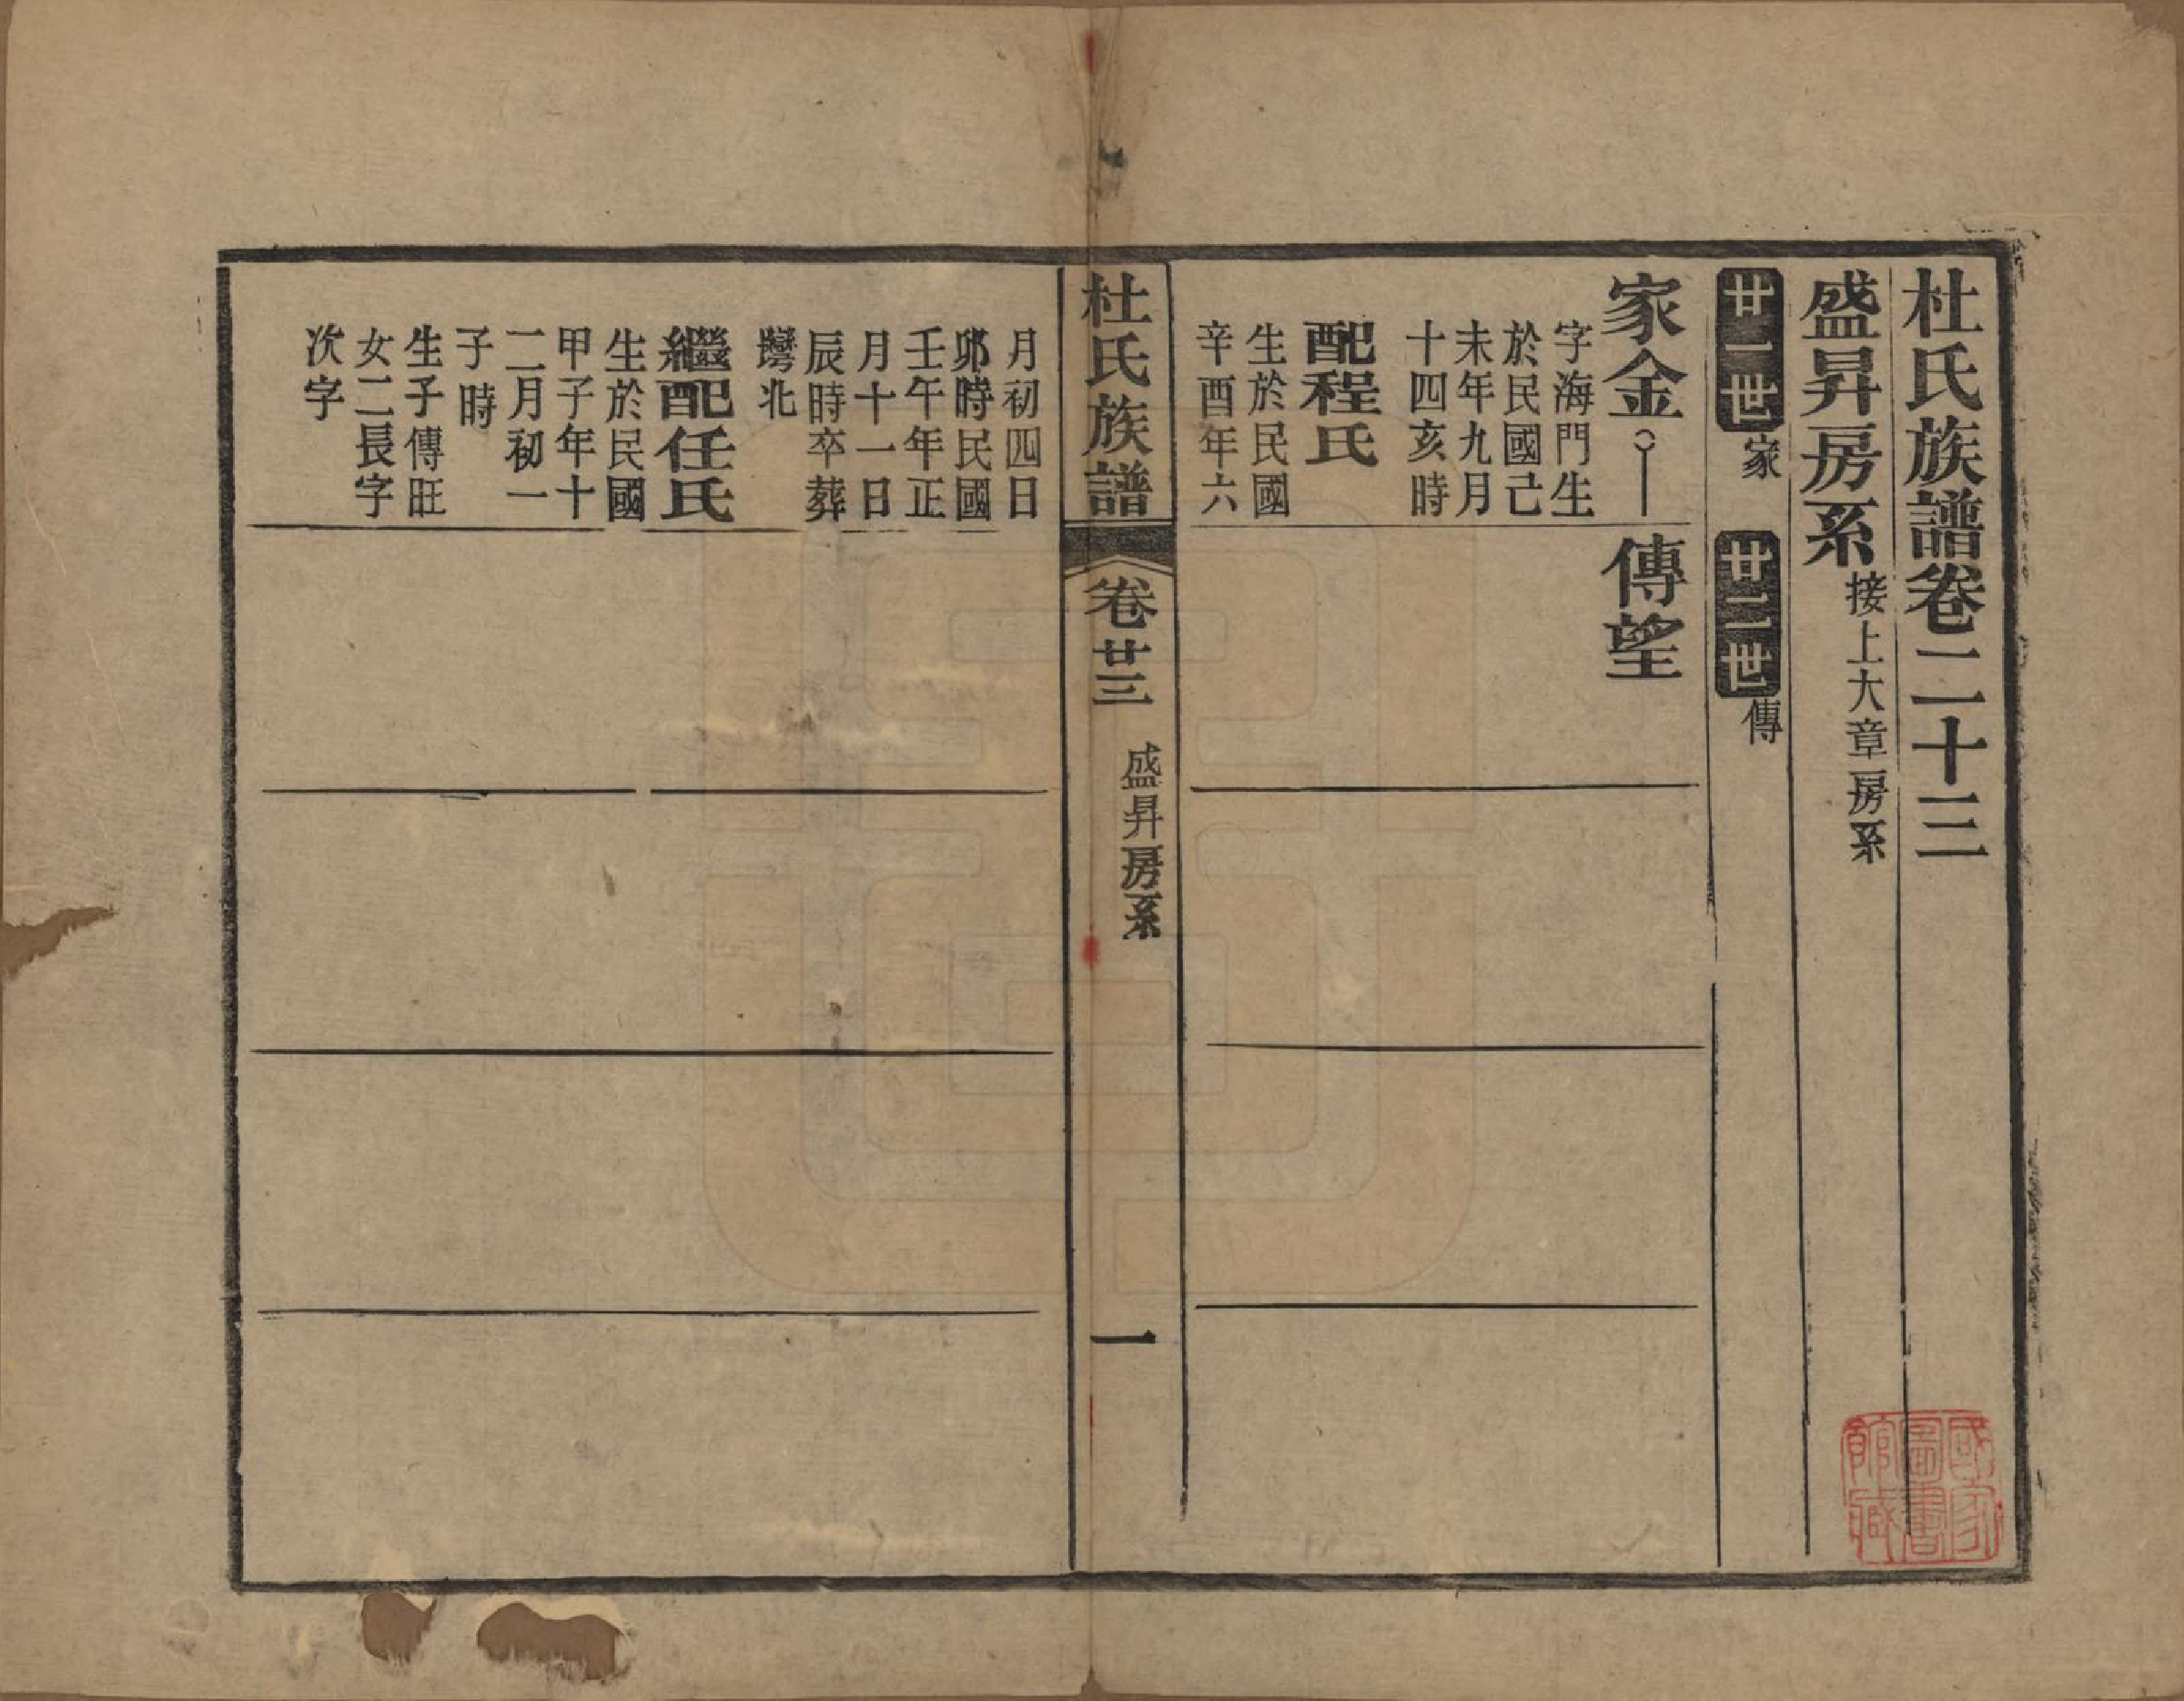 杜氏族譜卷二十三
盛昇房系接上大章房系
廿一世家
廿二世傳
家金
字海門生
於民國己
未年九月
十四亥時
配程氏
生於民國
辛酉年六
傳望
杜氏族譜
卷廿三
盛昇房系
一
月初四日
卯時民國
壬午年正
月十一日
辰時卒葬
灣北
繼配任氏
生於民國
甲子年十
二月初一
子時
生子傳旺
女二長字
次字
國家
圖書
館藏